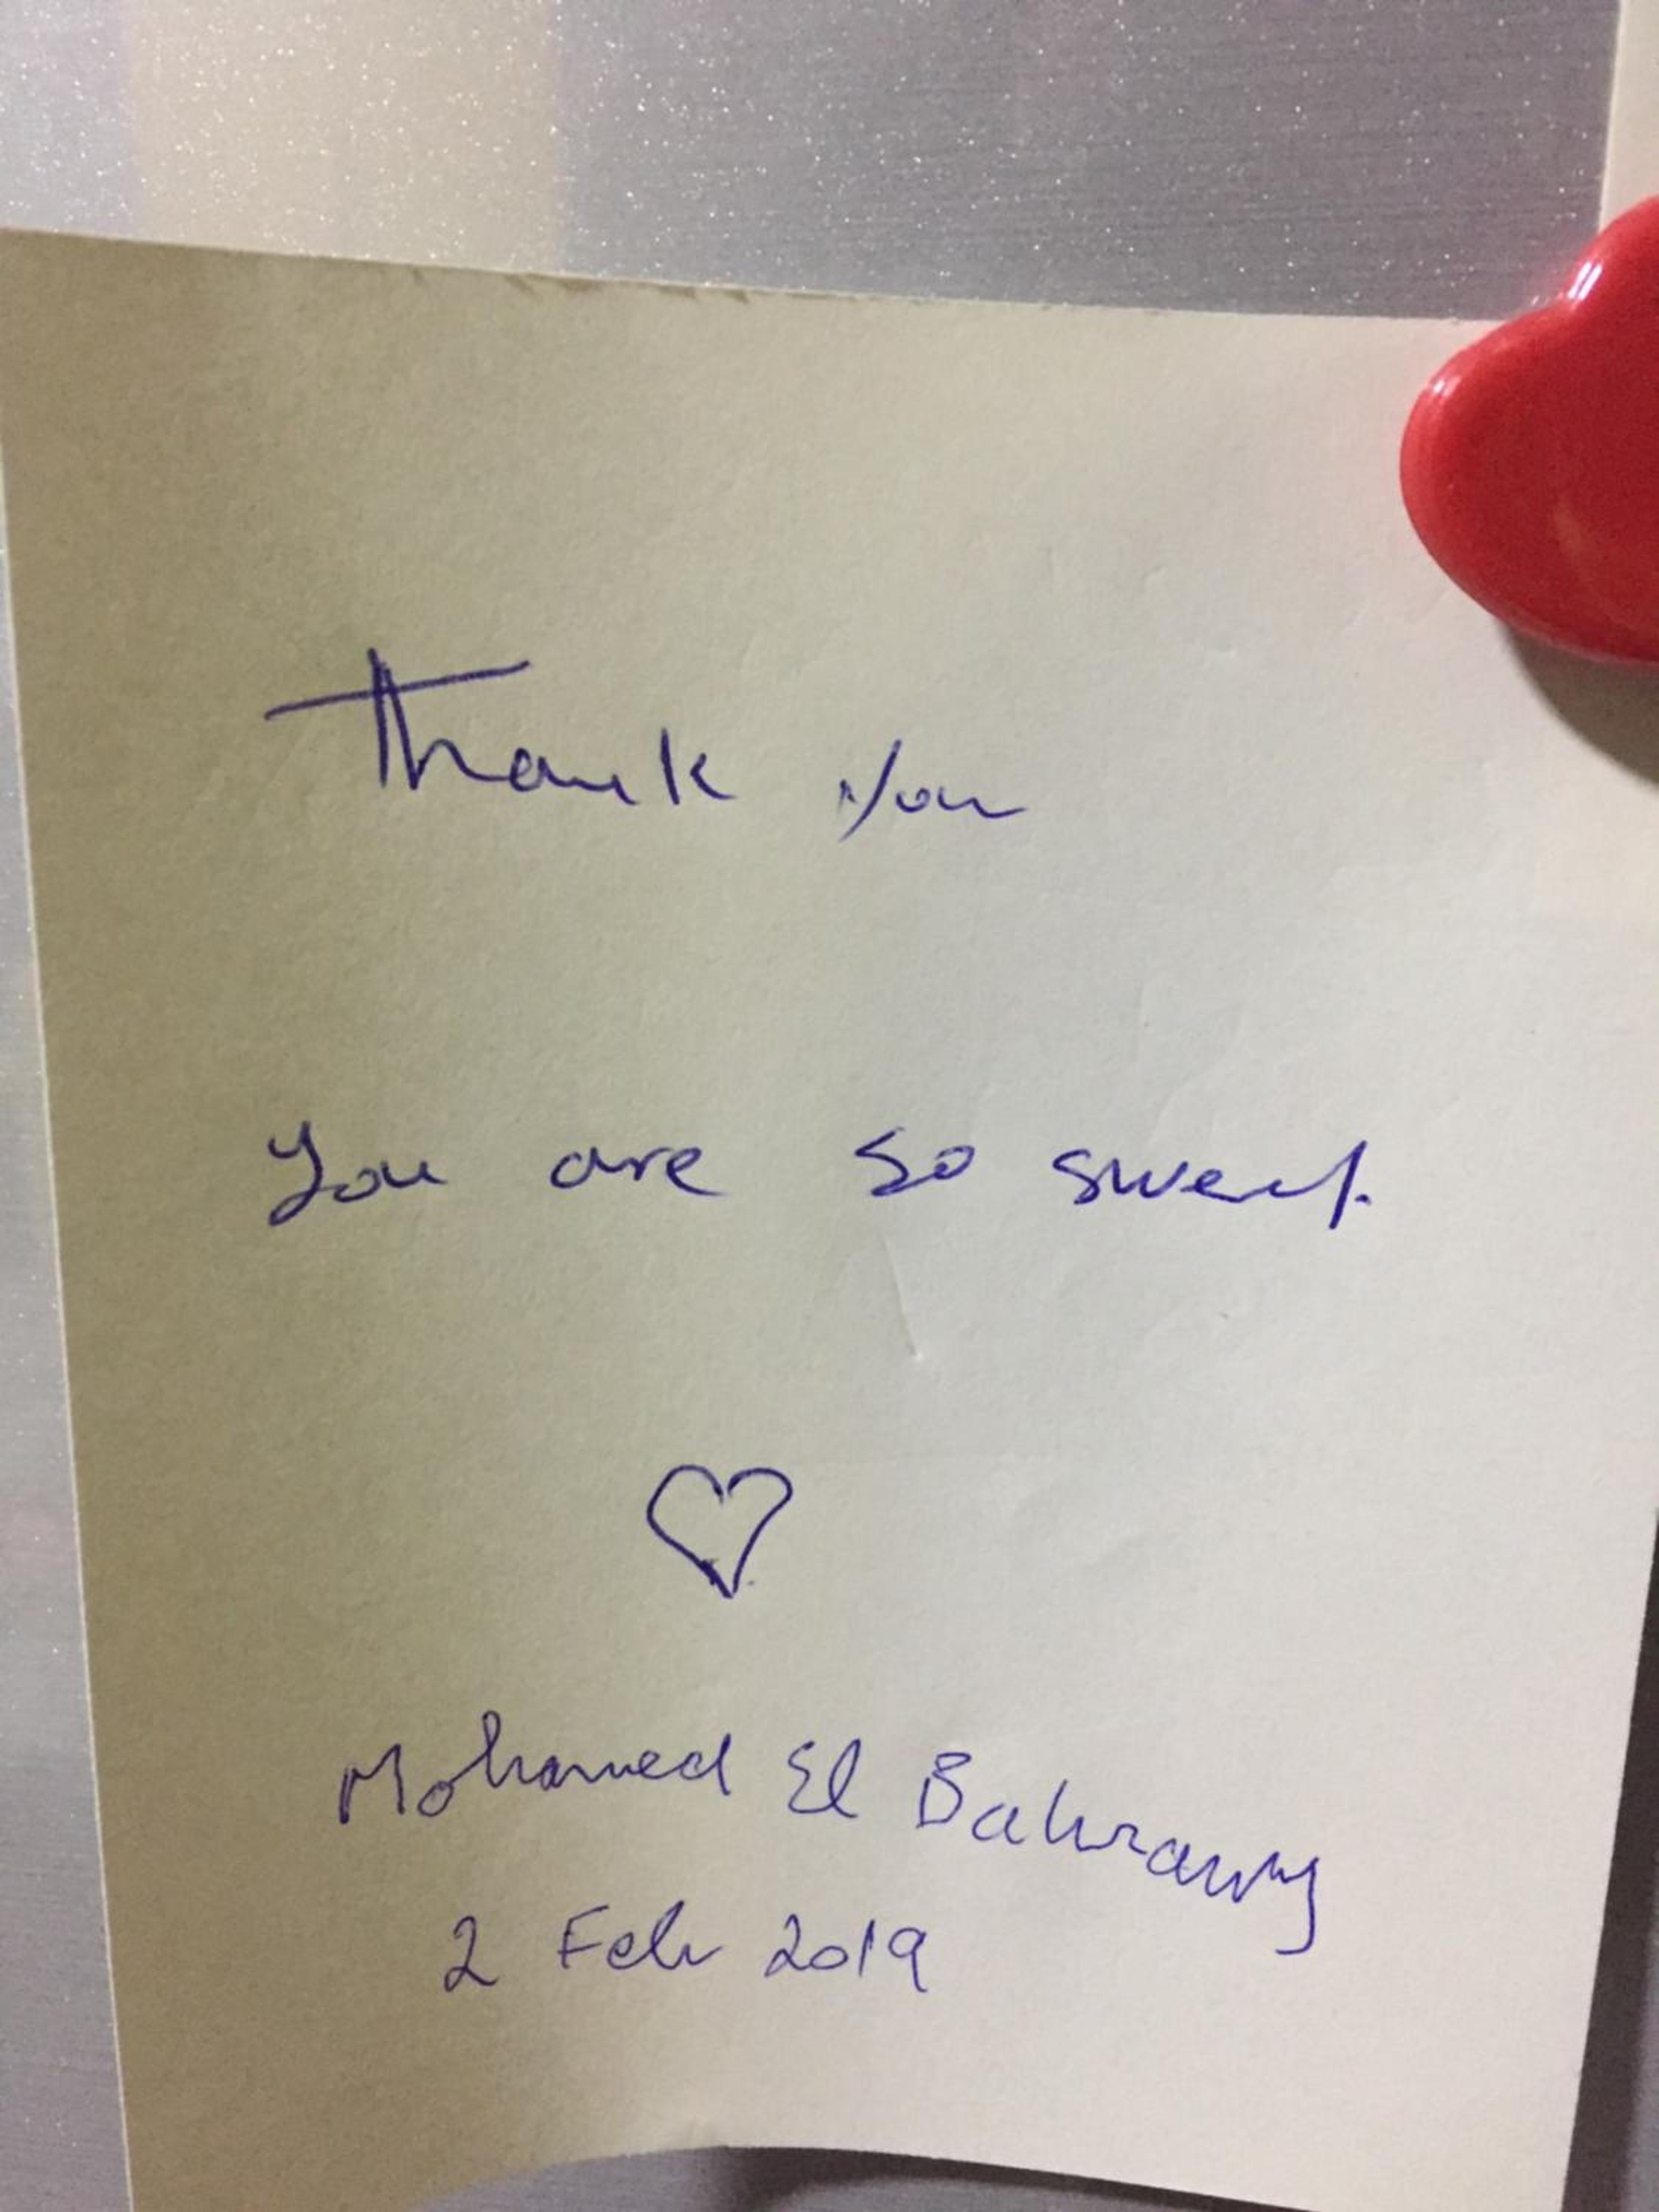 Thank you
You are so sweet.
Mohamed El Bahrawy
2 Feb 2019